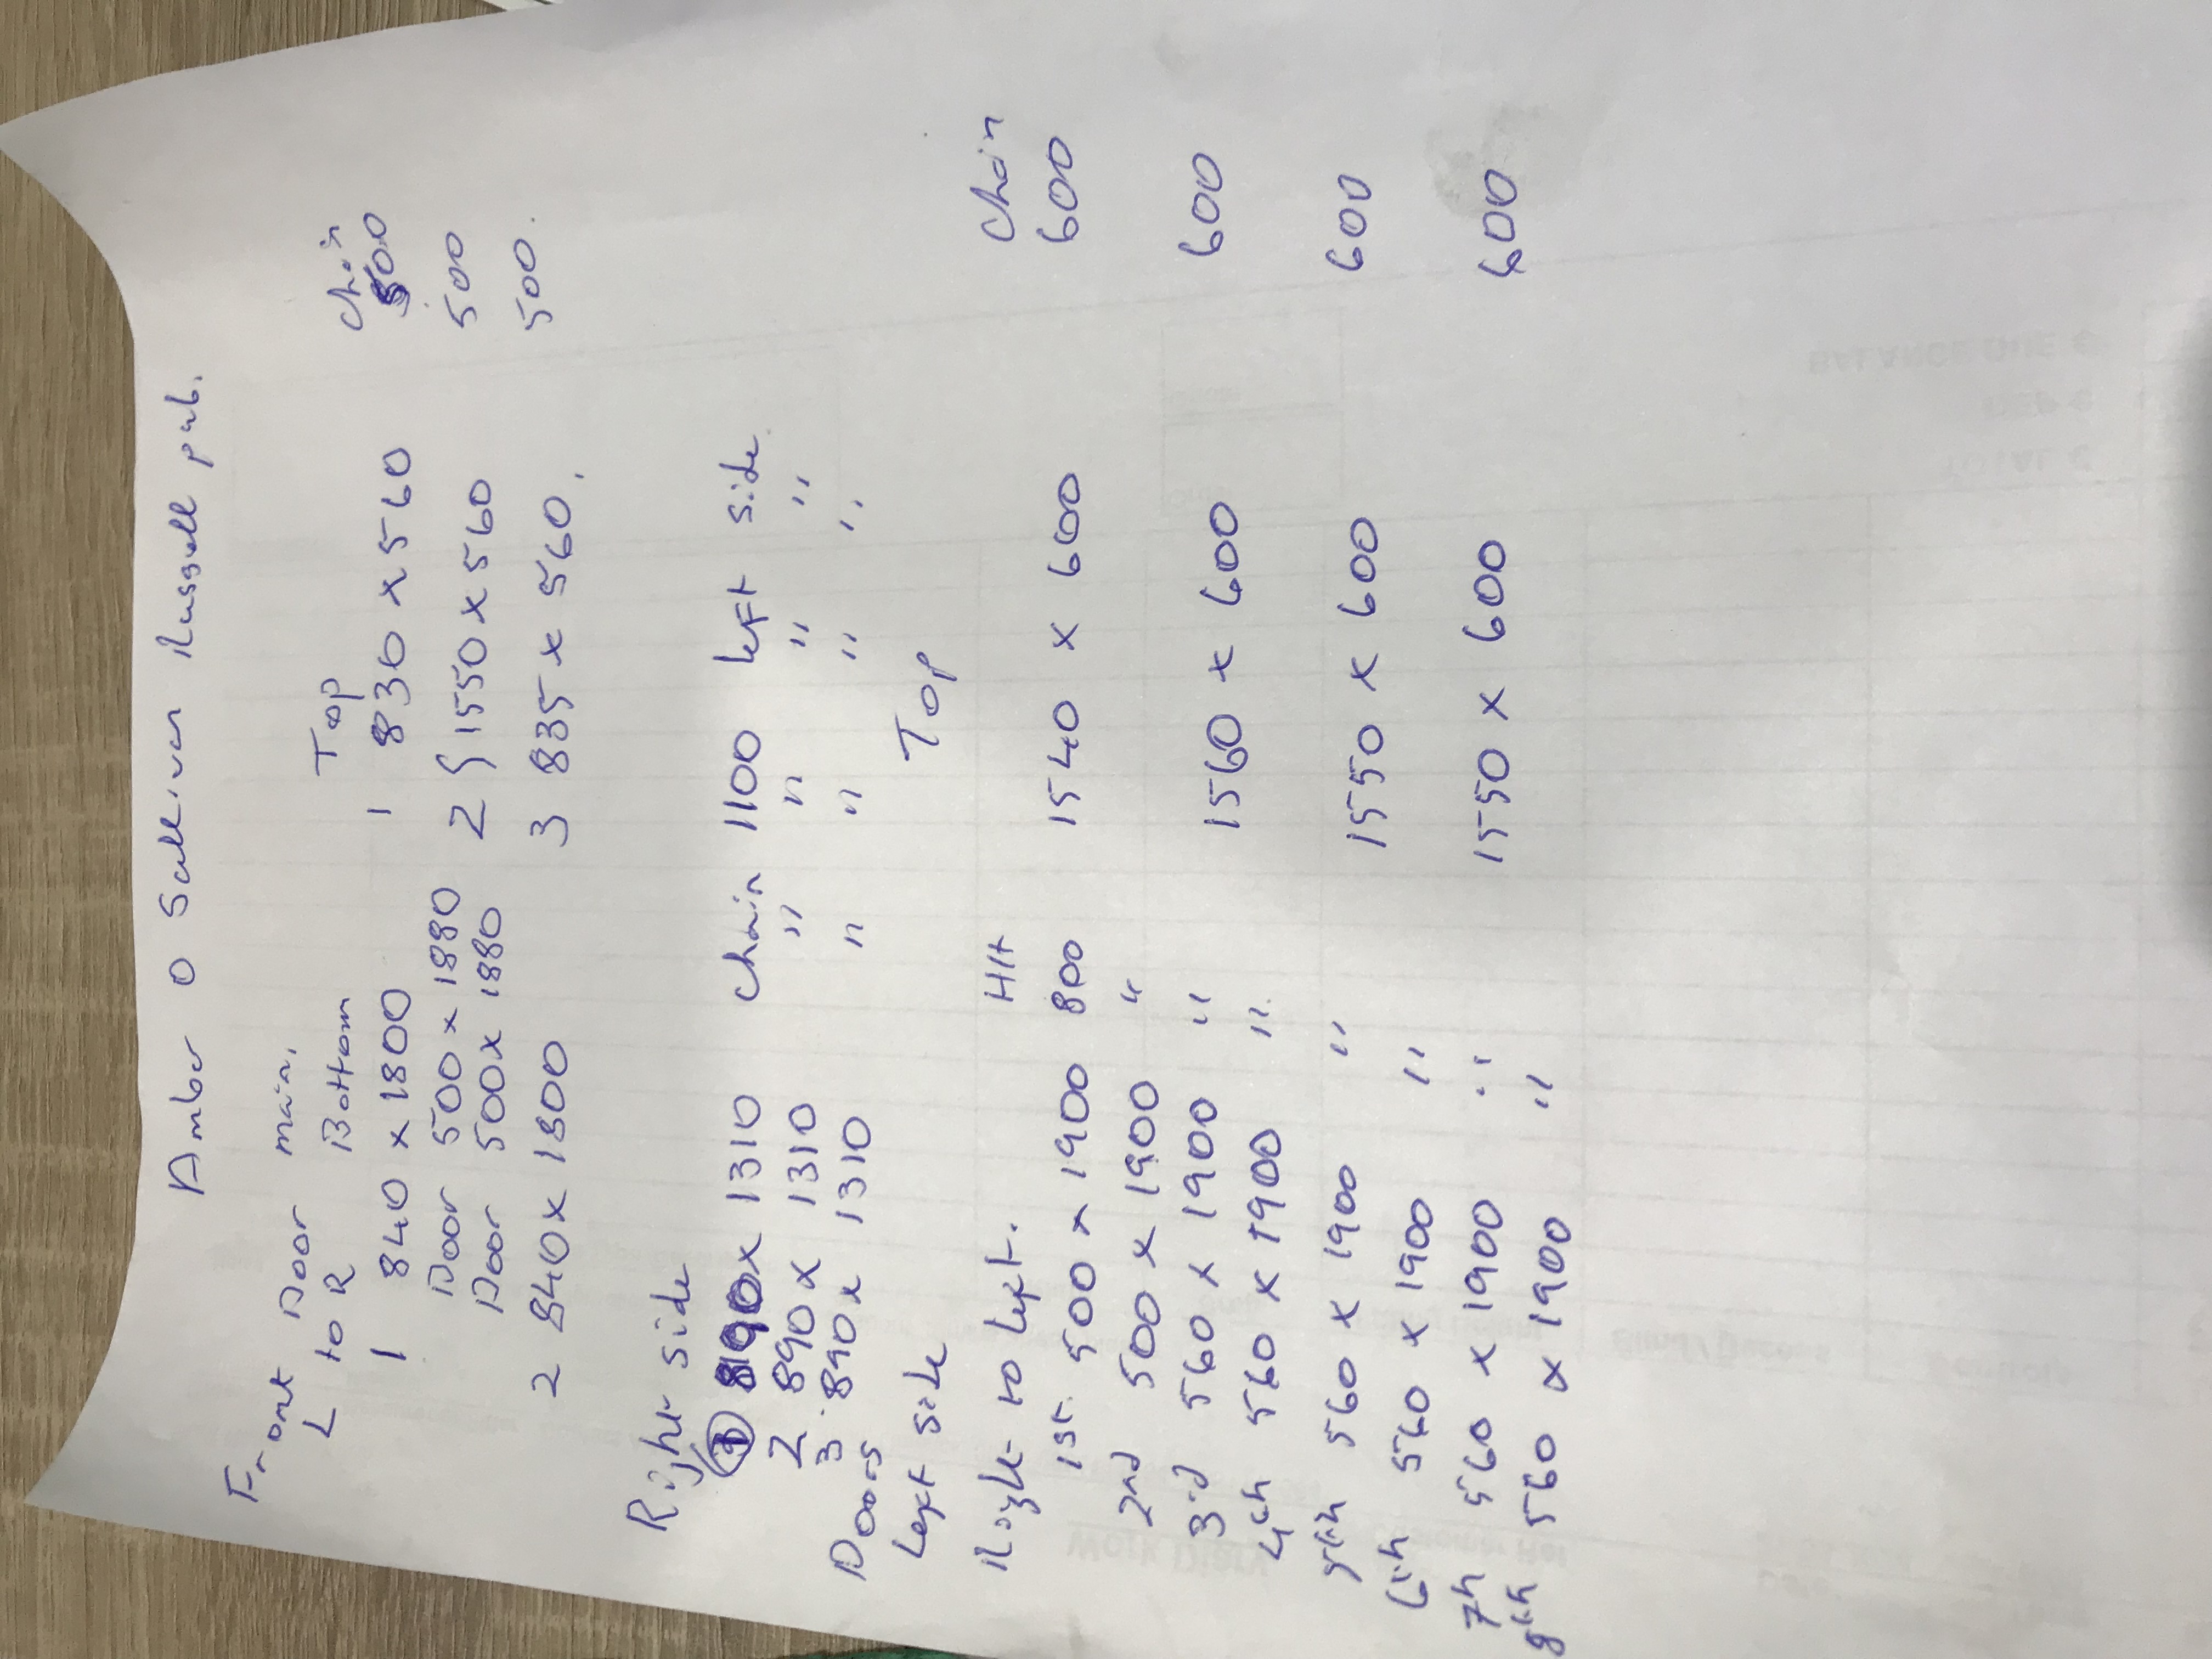 Amber O Sullivan Russell pub.
Front Door main.
L to R Bottom Top Chain
1 840 x 1800 1 830 x 560 500
Door 500 x 1880 2 1550 x 560 500
Door 500 x 1880
2 840 x 1800 3 835 x 560. 500.
Right side
1 890 x 1310 Chain 1100 left side.
2 890 x 1310 " " " "
3 890 x 1310 " " " "
Doors
Left side Top
Right to left. H/t Chain
1st. 500 x 1900 800 1540 x 600 600
2nd 500 x 1900 "
3rd 560 x 1900 " 1560 x 600 600
4th 560 x 1900 "
5th 560 x 1900 " 1550 x 600 600
6th 560 x 1900 "
7th 560 x 1900 " 1550 x 600 600
8th 560 x 1900 "
BALANCE DUE
DEP
TOTAL
WORK DIARY
Customer Ref